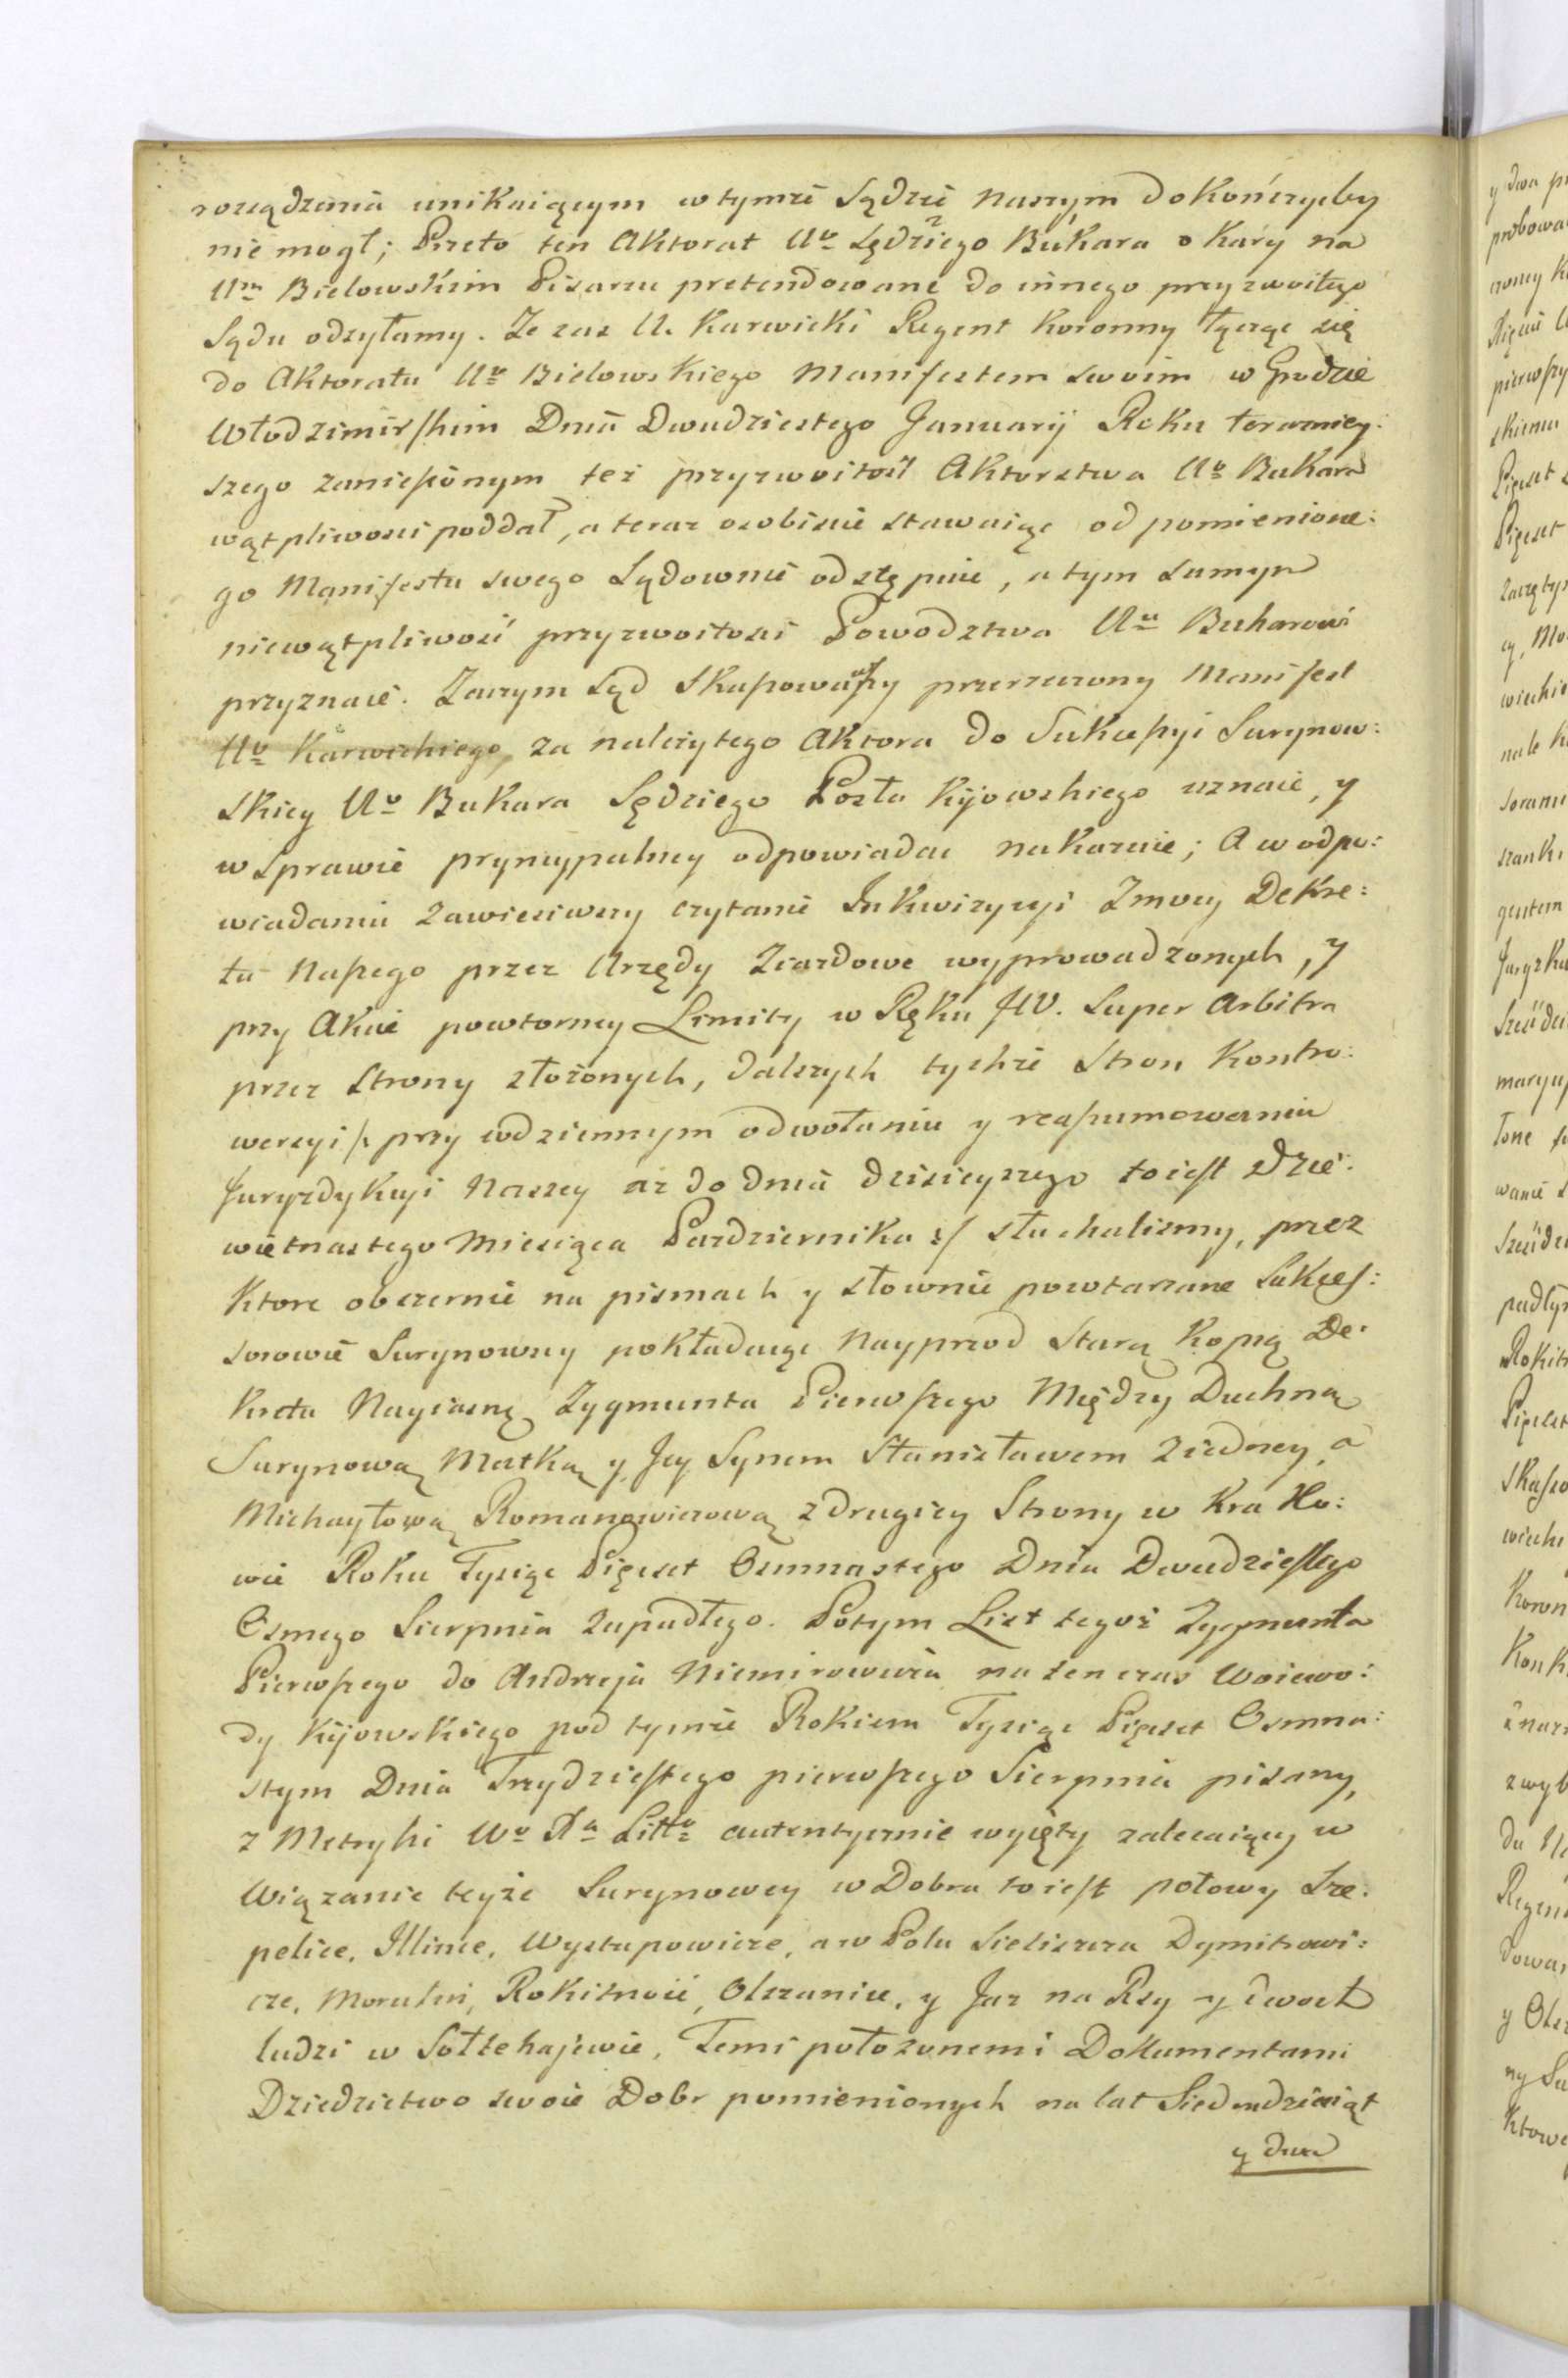 rozsądzenia unikaiącym w tymże Sądzie naszym dokończyćby
nie mogł; Przeto ten Aktorat Uo Sędziego Bukara o Kary na
Um Bielowskim Pisarzu pretendowane do innego przyzwoitego
Sądu odsyłamy. Ze zas U. Karwicki Regent Koronny łącząc się
do Aktoratu Uo Bielowskiego Manifestem swoim w Grodzie
Włodzimirskim Dnia Dwudziestego January Roku teraznieỳ:
szego zaniesionym też przyzwoitość Aktorstwa Uo Bukara
wątpliwosci poddał, a teraz osobiscie stawaiąc od pomienione:
go Manifestu swego Sądownie odstępuie, a tym samym
niewątpliwość przyzwoitosci Powodztwa Uu Bukarowi
przyznaie. Zaczym Sąd Skassowawszy przerzeczony Manifest
Uo Karwickiego, za należytego Aktora do Sukcessyi Surynow:
skiey Uo Bukara Sędziego Posła Kijowskiego uznaie, y
w Sprawie pryncypalney odpowiadać nakazuie; A w odpo:
wiadaniu zawiesiwszy czytanie Inkwizycyi z mocy Dekre:
tu Naszego przez Urzędy Ziazdowe wyprowadzonych, y
przy Akcie powtorney Limity w Ręku JW. Super Arbitra
przez Strony złożonych, dalszych tychże Stron Kontro:
wersyi /: przy codziennym odwołaniu y reassumowaniu
Juryzdykcyi Naszey aż do dnia dzisieyszego to iest Dzie:
więtnastego Miesiąca Pazdziernika :/ słuchalismy, przez
Ktore obszernie na pismach y słownie powtarzane Sukces:
sorowie Surynowscy pokładaiąc Nayprzod Starą Kopią De:
kretu Nayiasnę Zygmunta Pierwszego Między Duchną
Surynową Matką y Jey Synem Stanisławem z iedney, a
Michayłową Romanowiczową z drugiey Strony w Krako:
wie Roku Tysiąc Pięcset Osmnastego Dnia Dwudziestego
Osmego Sierpnia zapadłego. Potym List tegoż Zygmunta
Pierwszego do Andrzeja Niemirowicza na ten czas Woiewo:
dy Kijowskiego pod tymże Rokiem Tysiąc Pięcset Osmna:
stym Dnia Trzydziestego pierwszego Sierpnia pisany,
z Metryki Wo Xa Litto autentycznie wyięty zalecaiący w
Wiązanie teyże Surynowey w Dobra to iest połowy Sze:
pelicc, Illince, Wystupowicze, a w Polu Sieliszcza Dymitrowi:
cze, Moralin, Rokitnoie, Olszanice, y Jaz na Rsy y dwoch
ludzi w Sołtehajewie, Temi położonemi Dokumentami
Dziedzictwo swoie Dobr pomienionych na lat Siedmdziesiąt
y dwa